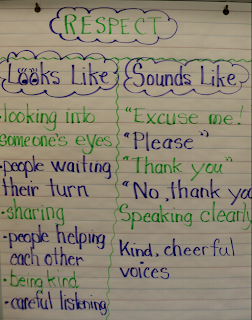 RESPECT
Looks Like
·looking into
someone's eyes
·people waiting
their turn
·sharing
·people helping
each other
·being kind
·careful listening
Sounds Like
"Excuse me!
"Please"
"Thank you"
"No, thank you
Speaking clearly
Kind, cheerful
voices